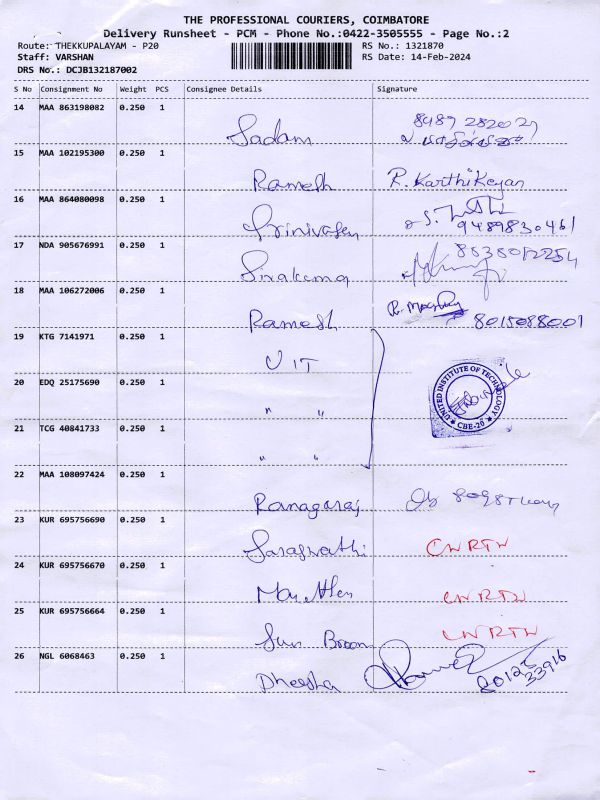 THE PROFESSIONAL COURIERS, COIMBATORE
Delivery Runsheet - PCM - Phone No.:0422-3505555 - Page No.:2
Route: THEKKUPALAYAM - P20 RS No.: 1321870
Staff: VARSHAN RS Date: 14-Feb-2024
DRS No.: DCJB132187002
S No Consignment No Weight PCS Consignee Details Signature
14 MAA 863198082 0.250 1
Sadam
15 MAA 102195300 0.250 1
Ramesh R. Karthikeyan
16 MAA 864080098 0.250 1
Srinivasan 9489830461
17 NDA 905676991 0.250 1
Sivakumar
18 MAA 106272006 0.250 1
Ramesh 8015088001
19 KTG 7141971 0.250 1
UIT
20 EDQ 25175690 0.250 1
" "
UNITED INSTITUTE OF TECHNOLOGY
★ CBE-20 ★
21 TCG 40841733 0.250 1
" "
22 MAA 108097424 0.250 1
Ranagaraj
23 KUR 695756690 0.250 1
Saraswathi CNRTN
24 KUR 695756670 0.250 1
CNRTN
25 KUR 695756664 0.250 1
Sun Broon CNRTN
26 NGL 6068463 0.250 1
Dheesha